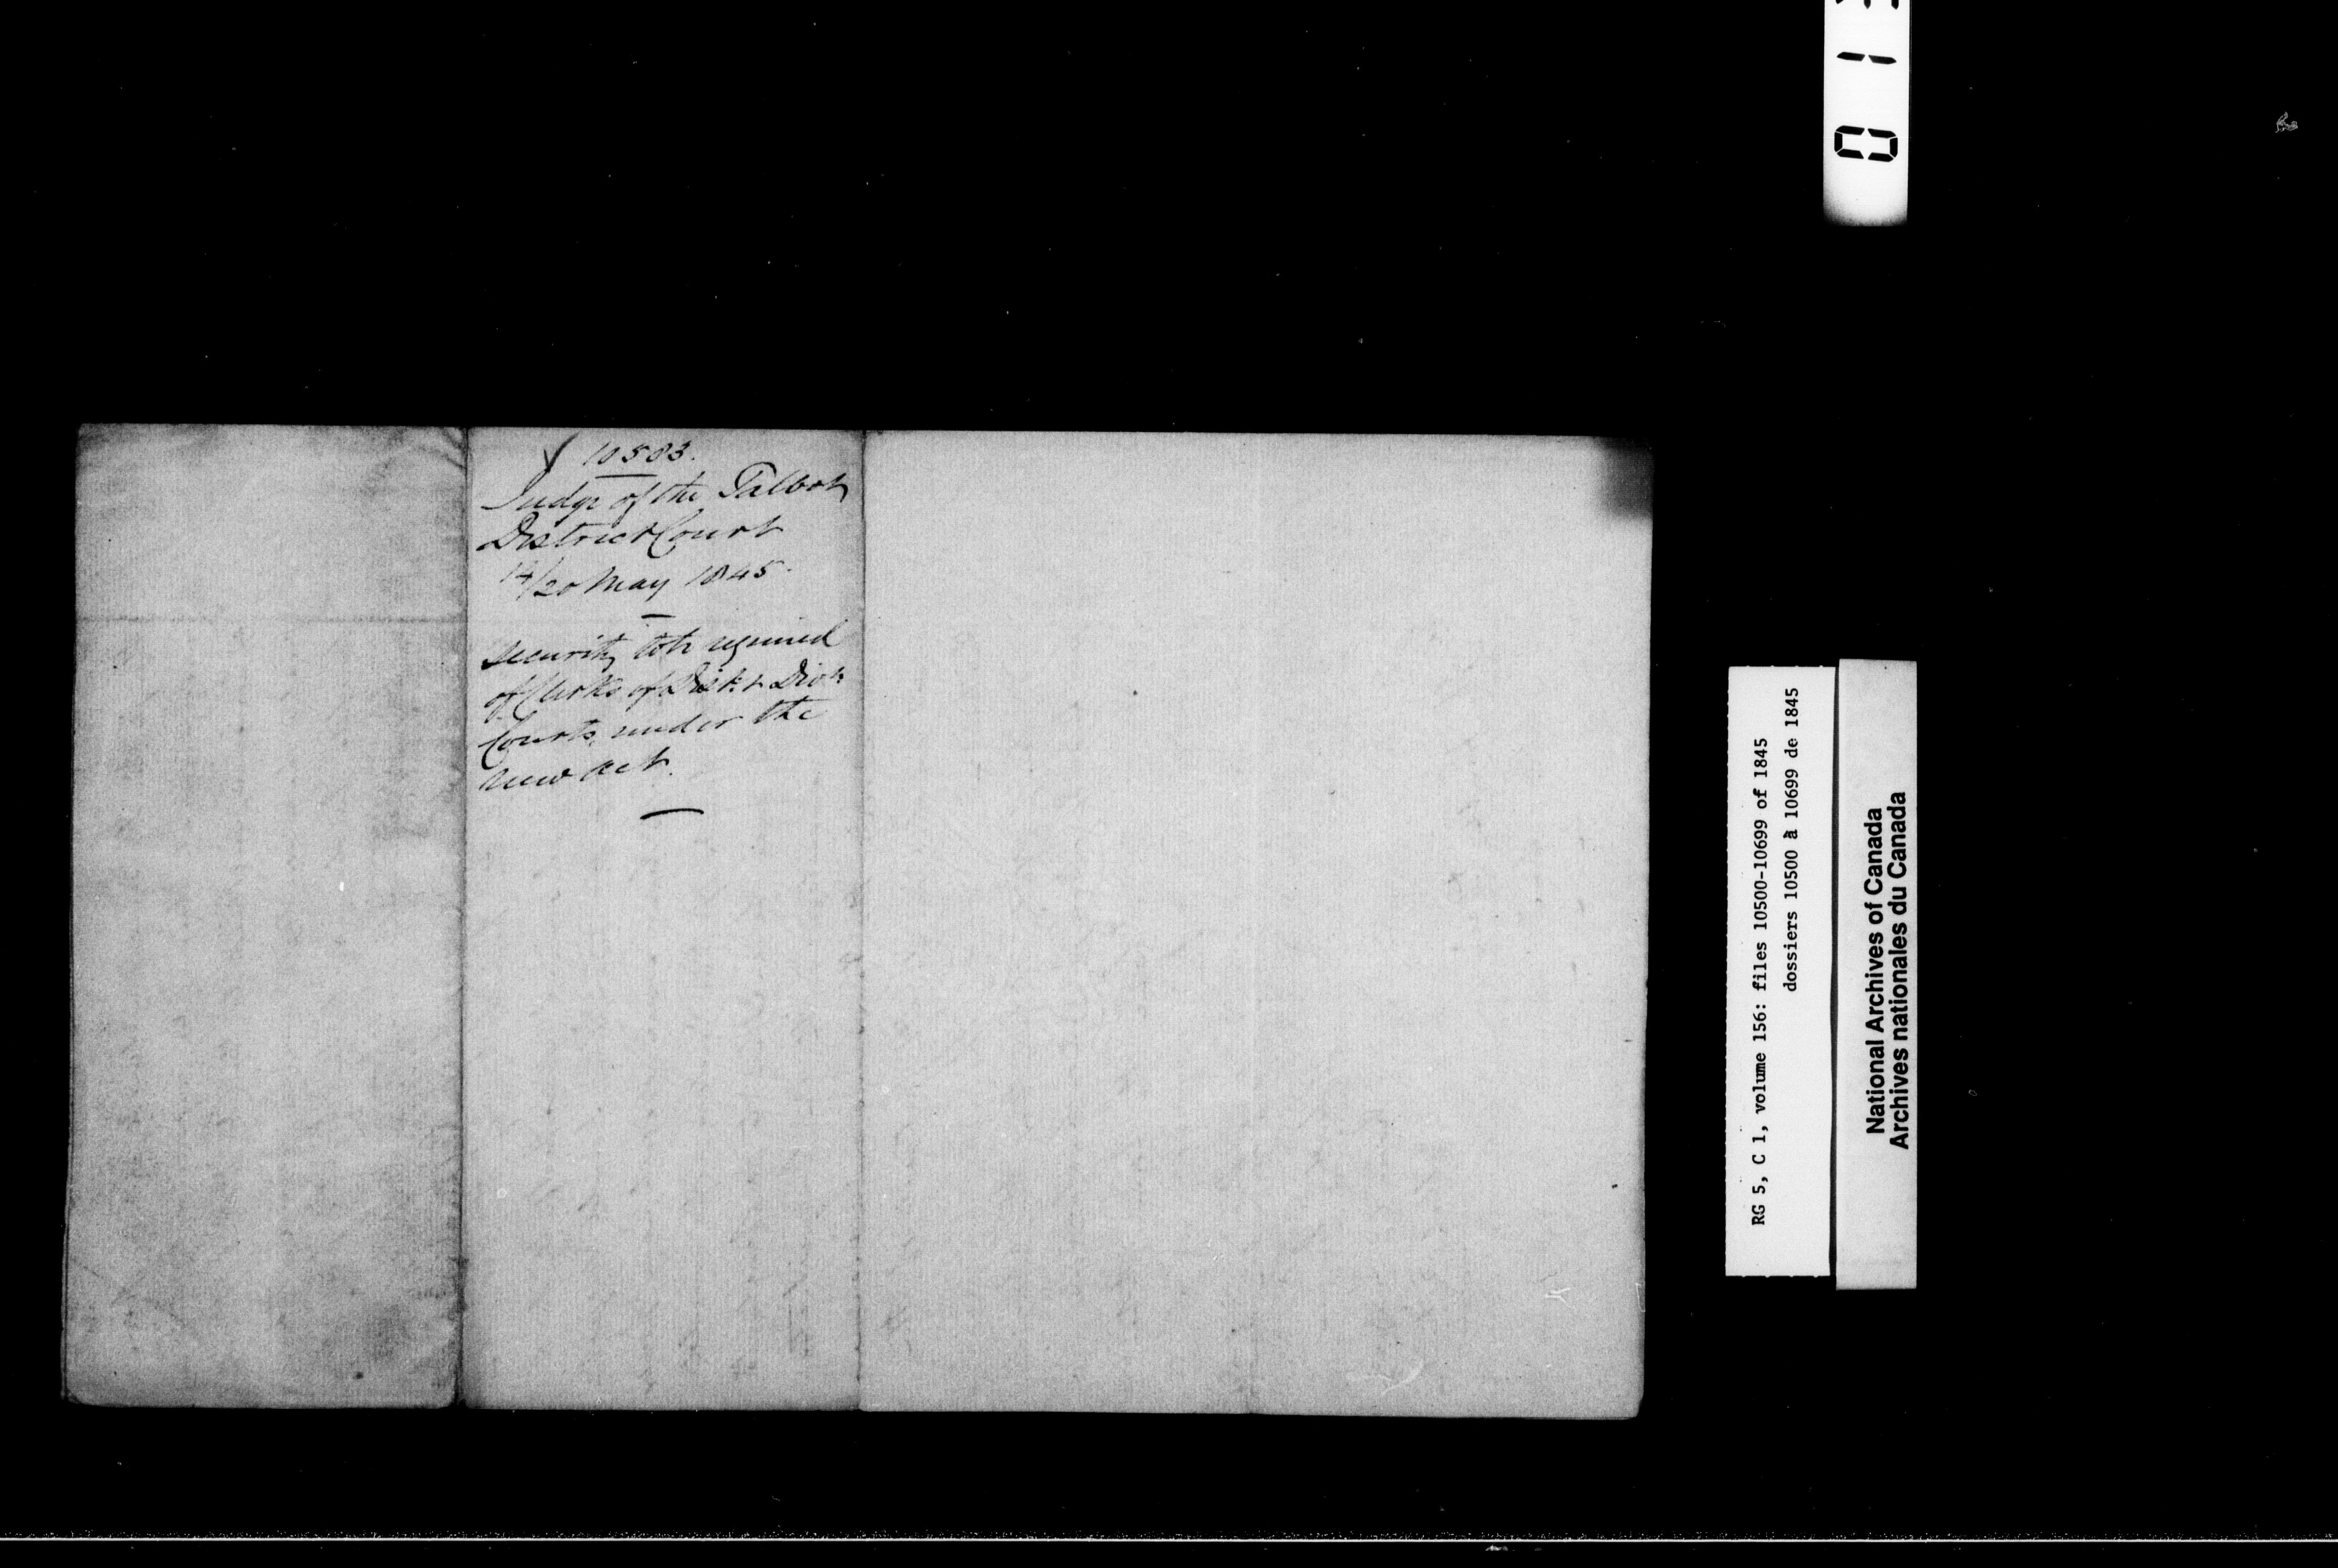 10583.
Judge of the Talbot
District Court
14/20 May 1845.
security to be required
of Clerks of Dist. & Divn
Courts, under the
new act.
RG 5, C 1, volume 156: files 10500-10699 of 1845
dossiers 10500 à 10699 de 1845
National Archives of Canada
Archives nationales du Canada
0 1